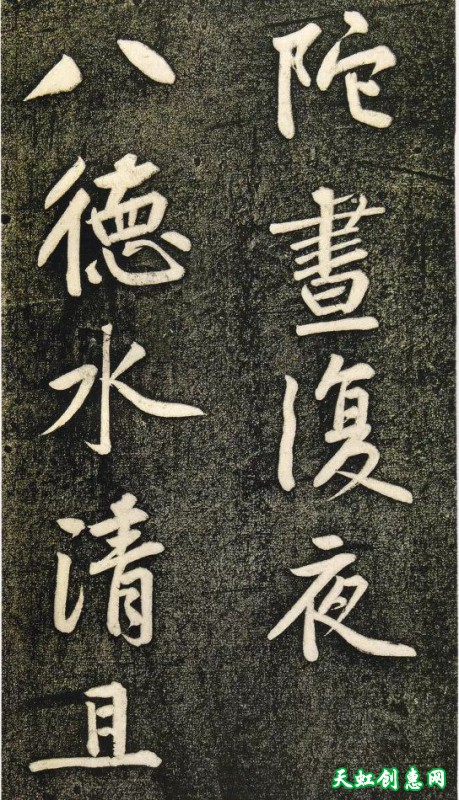 陀晝復夜
八德水清且
天虹创惠网